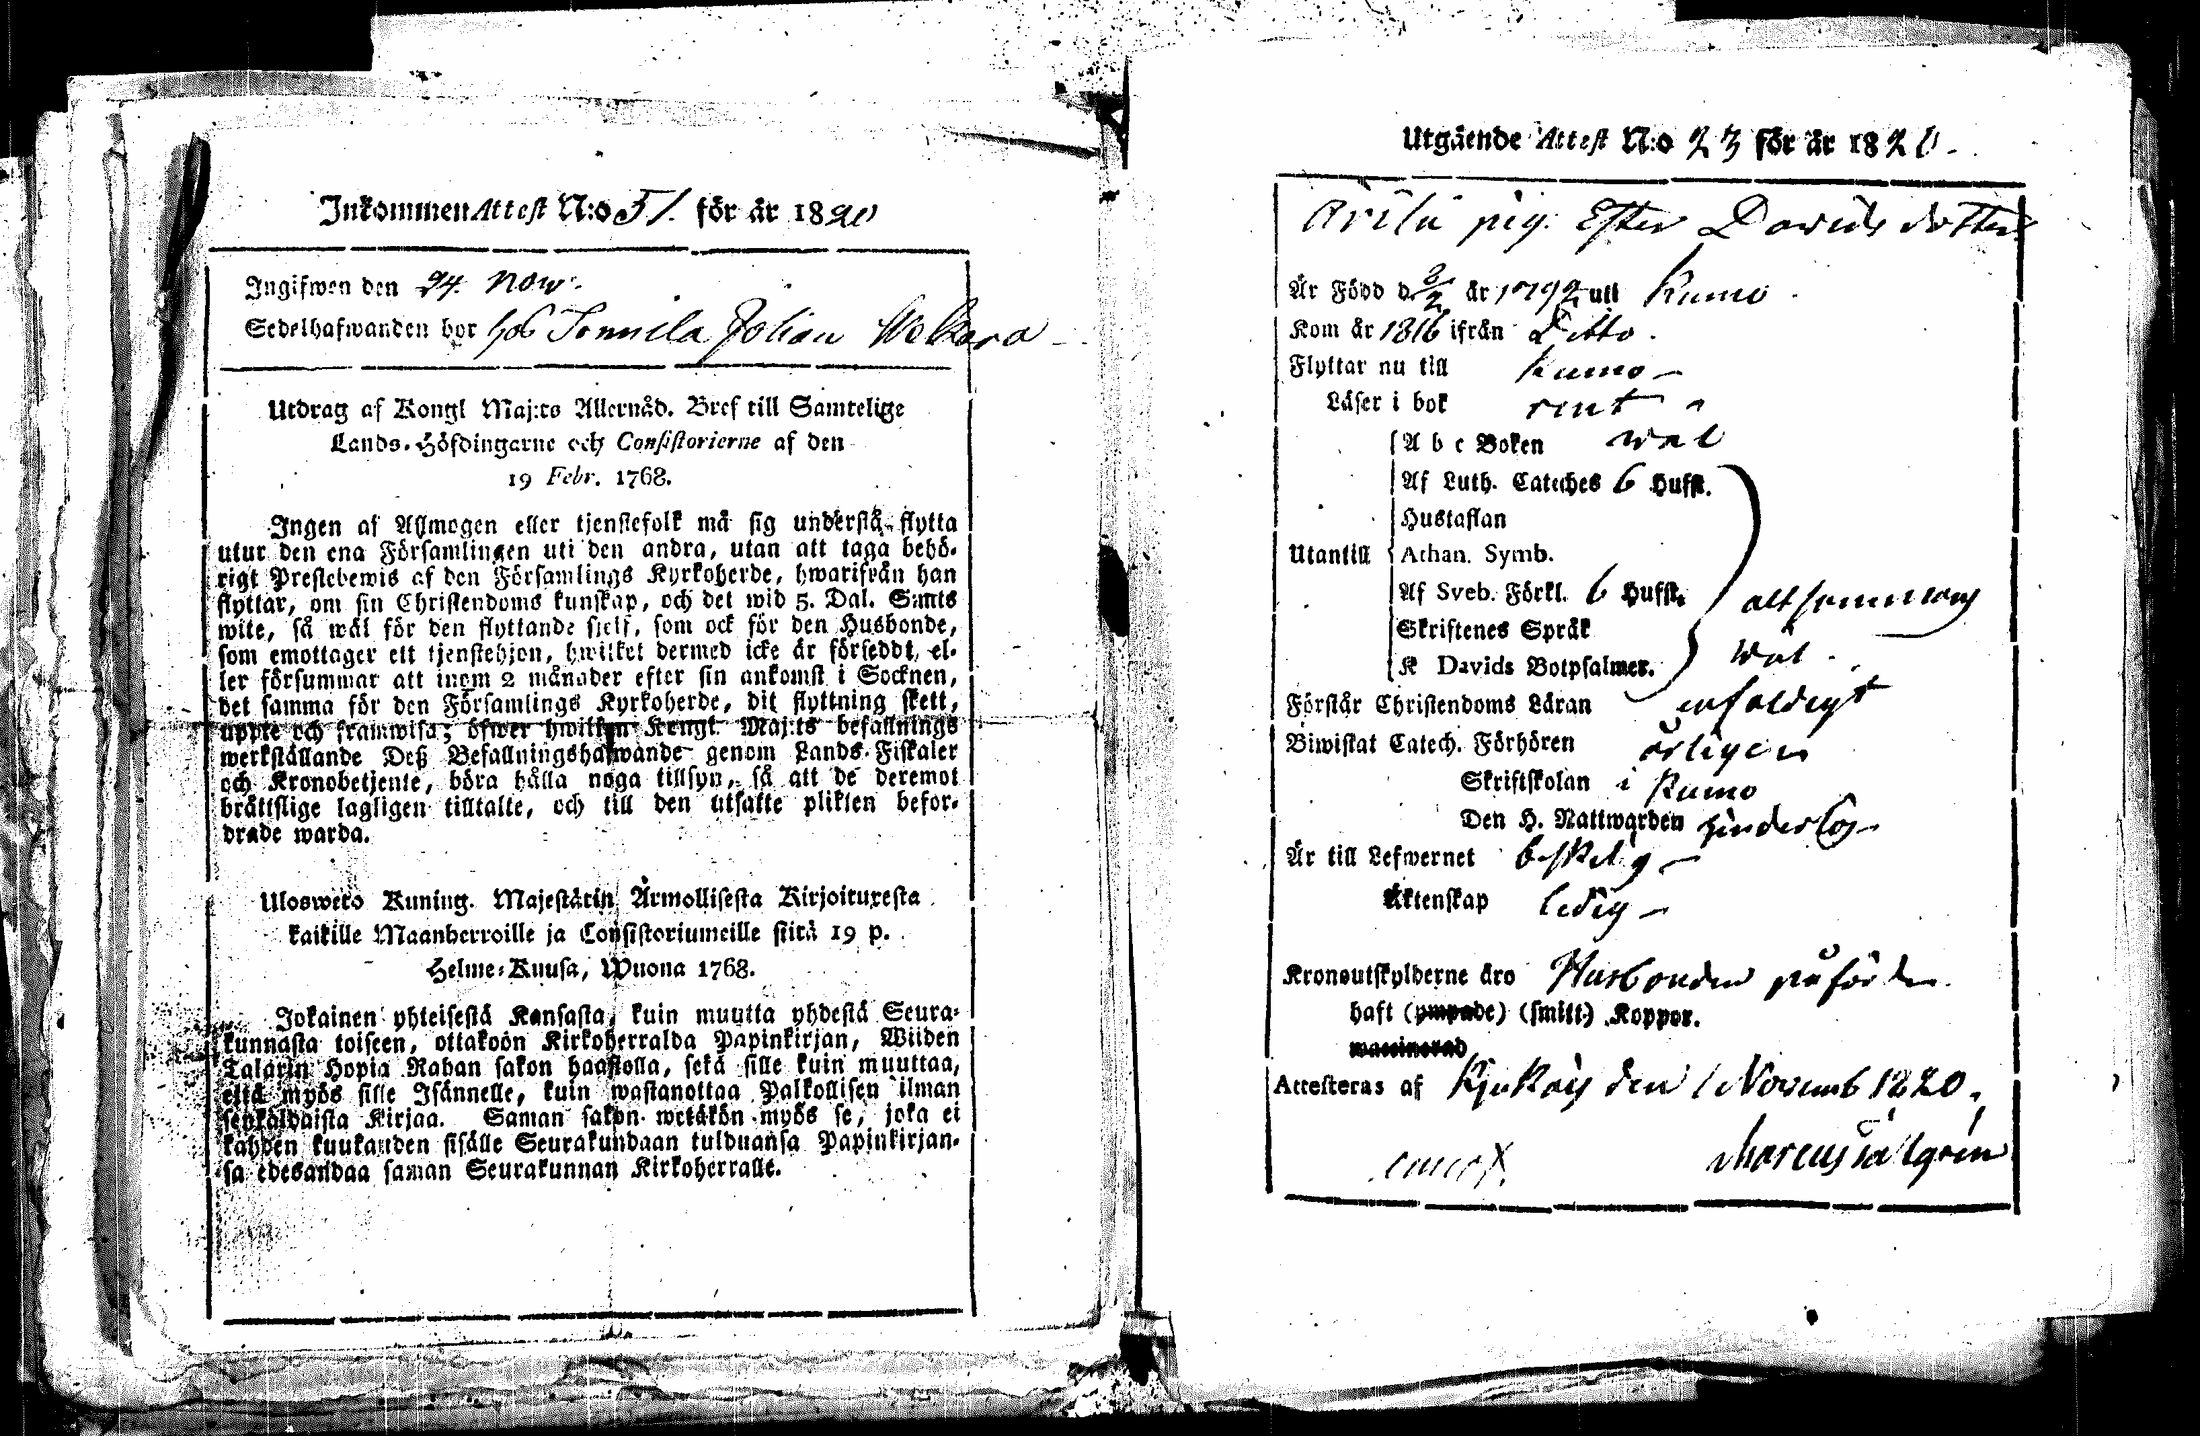 Inkommen Attest N:o 51. för år 1820
Ingifwen den 24. Now:
Sedelhafwanden bor hos Tomila Johan
Utdrag af Kongl Maj:ts Allernåd. Bref till Samtelige
Lands-Höfdingarne och Consistorierne af den
19 Febr. 1768.
Ingen af Allmogen eller tjenstefolk må sig understå, flytta
utur den ena Församlingen uti den andra, utan att taga behö-
rigt Prestebewis af den Församlings Kyrkoherde, hwarifrån han
flyttar, om sin Christendoms kunskap, och det wid 5. Dal. S:mts
wite, så wäl för den flyttande sielf, som ock för den Husbonde,
som emottager ett tjenstehjon, hwilket dermed icke är försedt, el-
ler försummar att inom 2 månader efter sin ankomst i Socknen,
det samma för den Församlings Kyrkoherde, dit flyttning skett,
uppte och framwisa; öfwer hwilken Kongl. Maj:ts befallnings
werkställande Deß Befallningshafwande genom Lands-Fiskaler
och Kronobetjente, böra hålla noga tillsyn, så att de deremot
bråttslige lagligen tilltalte, och till den utsatte plikten befor-
drade warda.
Ulosweto Kuning. Majestätin Armollisesta Kirjoituxesta
kaikille Maanherroille ja Consistoriumeille siitä 19 p.
Helme-Kuusa, Wuona 1768.
Jokainen yhteisestä Kansasta, kuin muutta yhdestä Seura-
kunnasta toiseen, ottakoon Kirkoherralda Papinkirjan, Wiiden
Talarin Hopia Rahan sakon haastolla, sekä sille kuin muuttaa,
että myös sille Isännelle, kuin wastanottaa Palkollisen ilman
senkaldaista Kirjaa. Saman sakon wetäkön myös se, joka ei
kahden kuukauden sisälle Seurakundaan tulduansa Papinkirjan-
sa edesandaa saman Seurakunnan Kirkoherralle.
Utgäende Attest N:o 23 för år 1820.
Arila pig. Ester Davids dotter
Är Född d. 8/2 år 1792 uti Kumo
Kom år 1816 ifrån Ditto.
Flyttar nu till Kumo
Läser i bok rent
A b c Boken wäl
Af Luth. Cateches 6 Hufst.
Hustaflan
Utantill Athan. Symb.
Af Sveb. Förkl. 6 Hufst. altsammans
Skriftenes Språk
K Davids Botpsalmer. wäl
Förstår Christendoms Läran enfaldigt
Biwistat Catech. Förhören årligen
Skriftskolan i Kumo
Den H. Nattwarden hinderlös
Är till Lefwernet beskedlig
Äktenskap ledig
Kronoutskylderne äro Husbonden påförde
haft (ympade) (smitt-) Koppor.
waccinerad
Attesteras af Kjukois den 1 Novemb 1820.
Marcus Tallgren